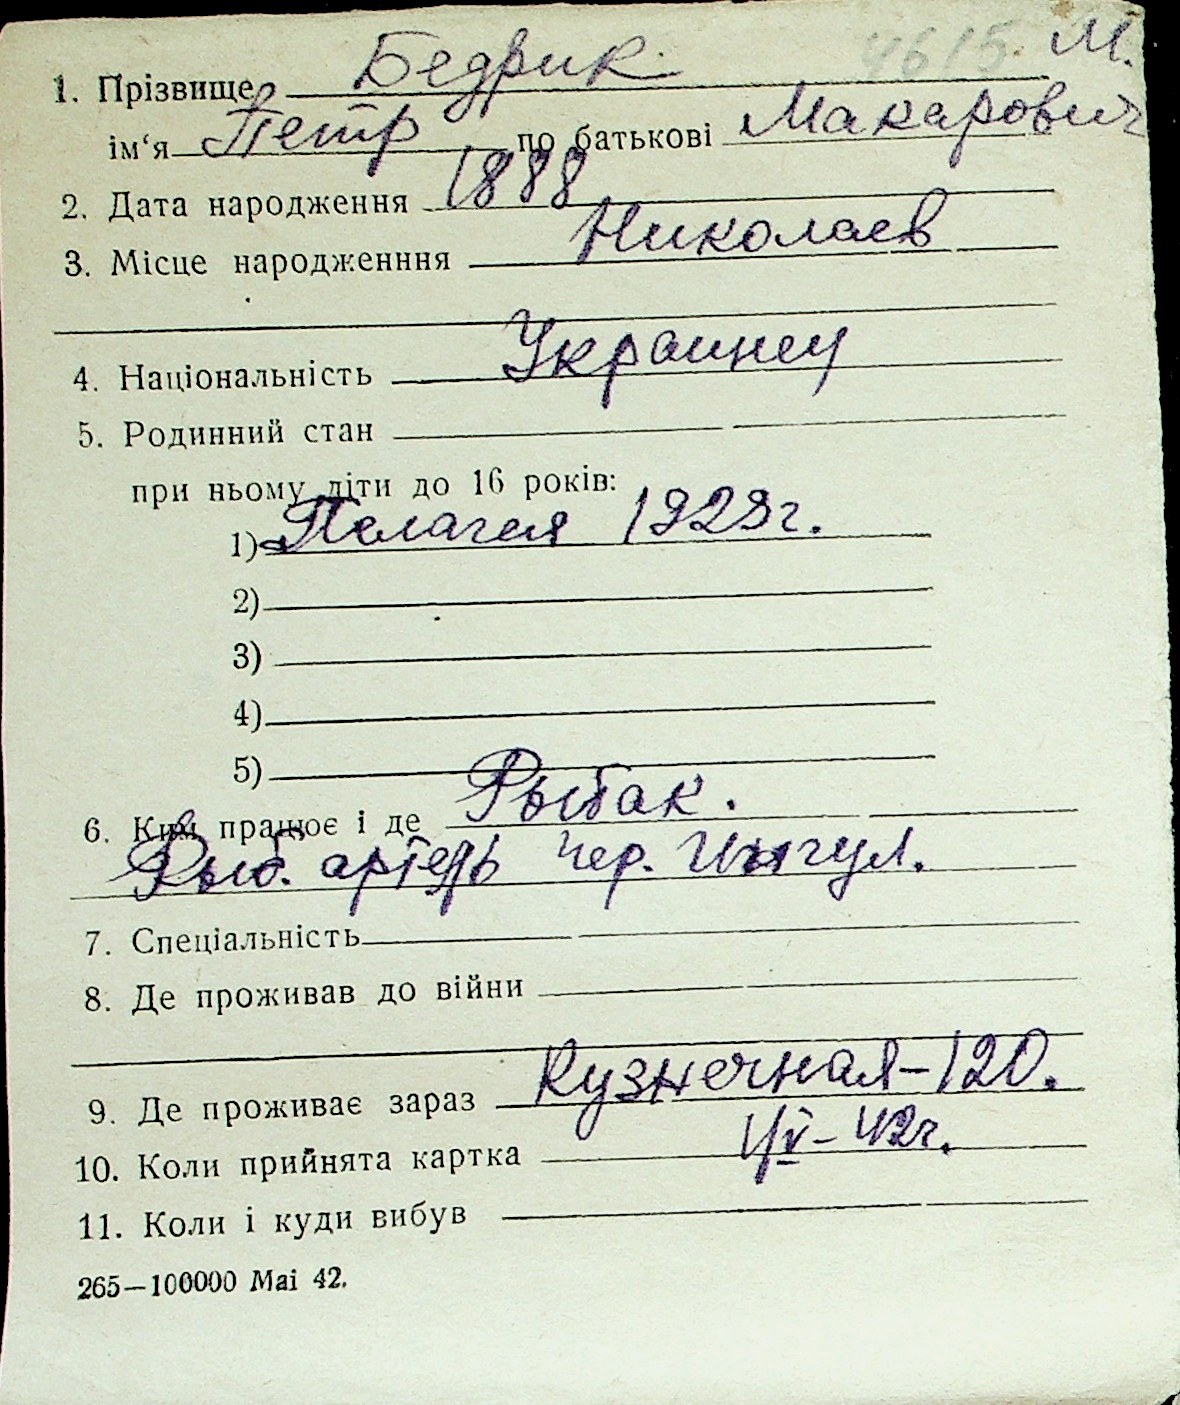 4615. М.
1. Прізвище Бедрик
ім‘я Петр по батькові Макарович
2. Дата народження 1888
3. Місце народженння Николаев
4. Національність Украинец
5. Родинний стан
при ньому діти до 16 років:
1) Пелагея 1929г.
2)
3)
4)
5)
6. Ким працює і де Рыбак.
Рыб. артель Чер. Ингул.
7. Спеціальність
8. Де проживав до війни
9. Де проживає зараз Кузнечная-120.
10. Коли прийнята картка 1/V-42г.
11. Коли і куди вибув
265—100000 Mai 42.